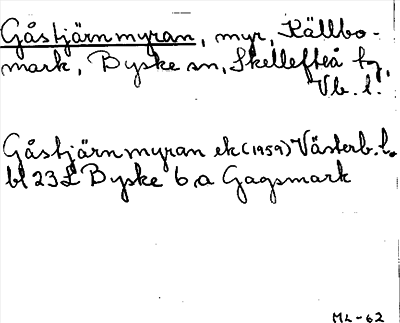 Gåstjärnmyran, myr, Källbo-
mark, Byske sn, Skellefteå tg,
Vb. l.
Gåstjärnmyran ek (1959) Västerb. l.
bl 23 L Byske 6 a Gagsmark
ML-62